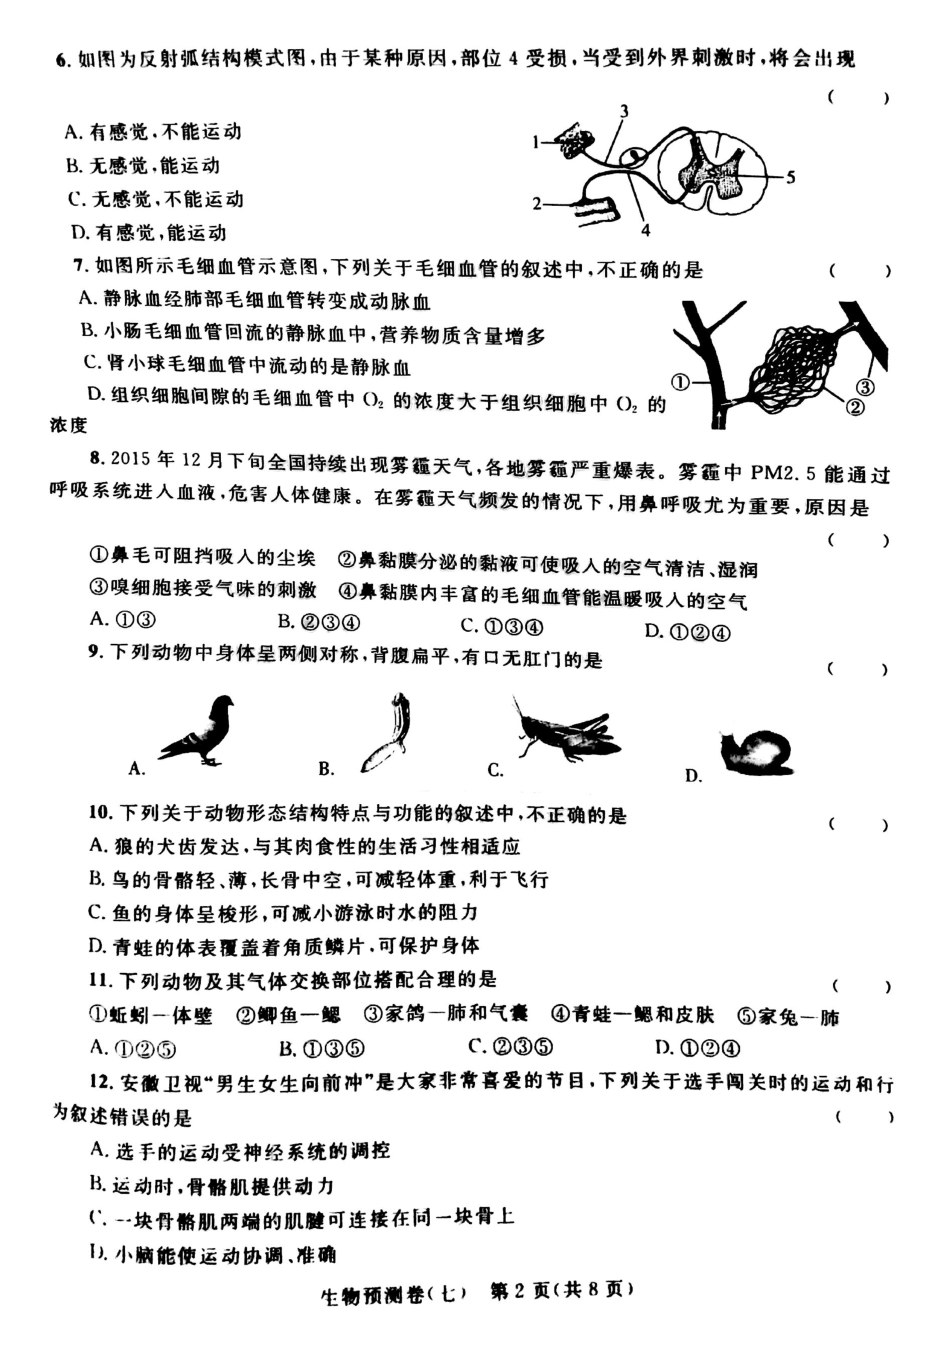 6. 如图为反射弧结构模式图,由于某种原因,部位 4 受损,当受到外界刺激时,将会出现
(　　)
A. 有感觉,不能运动
B. 无感觉,能运动
C. 无感觉,不能运动
D. 有感觉,能运动
1
2
3
4
5
7. 如图所示毛细血管示意图,下列关于毛细血管的叙述中,不正确的是 (　　)
A. 静脉血经肺部毛细血管转变成动脉血
B. 小肠毛细血管回流的静脉血中,营养物质含量增多
C. 肾小球毛细血管中流动的是静脉血
D. 组织细胞间隙的毛细血管中 O₂ 的浓度大于组织细胞中 O₂ 的
浓度
①
②
③
8. 2015 年 12 月下旬全国持续出现雾霾天气,各地雾霾严重爆表。雾霾中 PM2. 5 能通过
呼吸系统进入血液,危害人体健康。在雾霾天气频发的情况下,用鼻呼吸尤为重要,原因是
(　　)
①鼻毛可阻挡吸入的尘埃　②鼻黏膜分泌的黏液可使吸入的空气清洁、湿润
③嗅细胞接受气味的刺激　④鼻黏膜内丰富的毛细血管能温暖吸入的空气
A. ①③　B. ②③④　C. ①③④　D. ①②④
9. 下列动物中身体呈两侧对称,背腹扁平,有口无肛门的是 (　　)
A.　B.　C.　D.
10. 下列关于动物形态结构特点与功能的叙述中,不正确的是 (　　)
A. 狼的犬齿发达,与其肉食性的生活习性相适应
B. 鸟的骨骼轻、薄,长骨中空,可减轻体重,利于飞行
C. 鱼的身体呈梭形,可减小游泳时水的阻力
D. 青蛙的体表覆盖着角质鳞片,可保护身体
11. 下列动物及其气体交换部位搭配合理的是 (　　)
①蚯蚓—体壁　②鲫鱼—鳃　③家鸽—肺和气囊　④青蛙—鳃和皮肤　⑤家兔—肺
A. ①②⑤　B. ①③⑤　C. ②③⑤　D. ①②④
12. 安徽卫视“男生女生向前冲”是大家非常喜爱的节目,下列关于选手闯关时的运动和行
为叙述错误的是 (　　)
A. 选手的运动受神经系统的调控
B. 运动时,骨骼肌提供动力
C. 一块骨骼肌两端的肌腱可连接在同一块骨上
D. 小脑能使运动协调、准确
生物预测卷(七)　第 2 页(共 8 页)